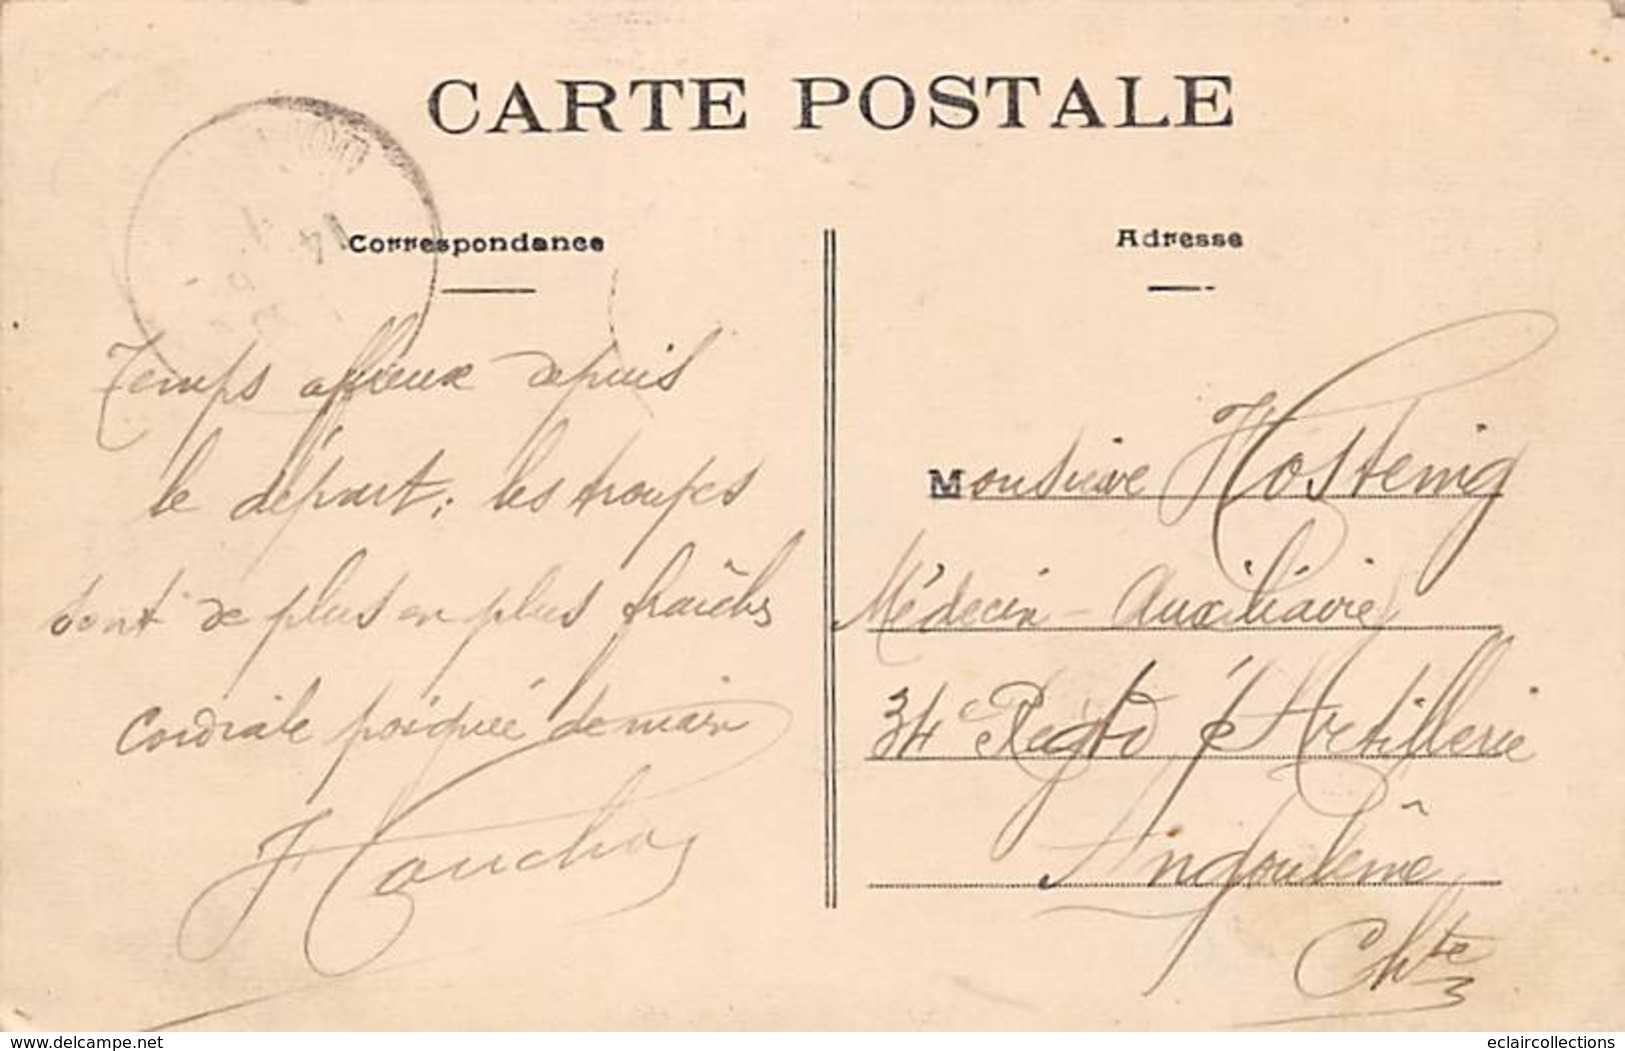 CARTE POSTALE
Correspondance
Adresse
Temps affreux depuis
le départ; les troupes
sont de plus en plus fraîches
Cordiale poignée de main
Monsieur Hostenig
Médecin-Auxiliaire
34e Regto d'Artillerie
Angoulême
Chte
www.delcampe.net
eclaircollections